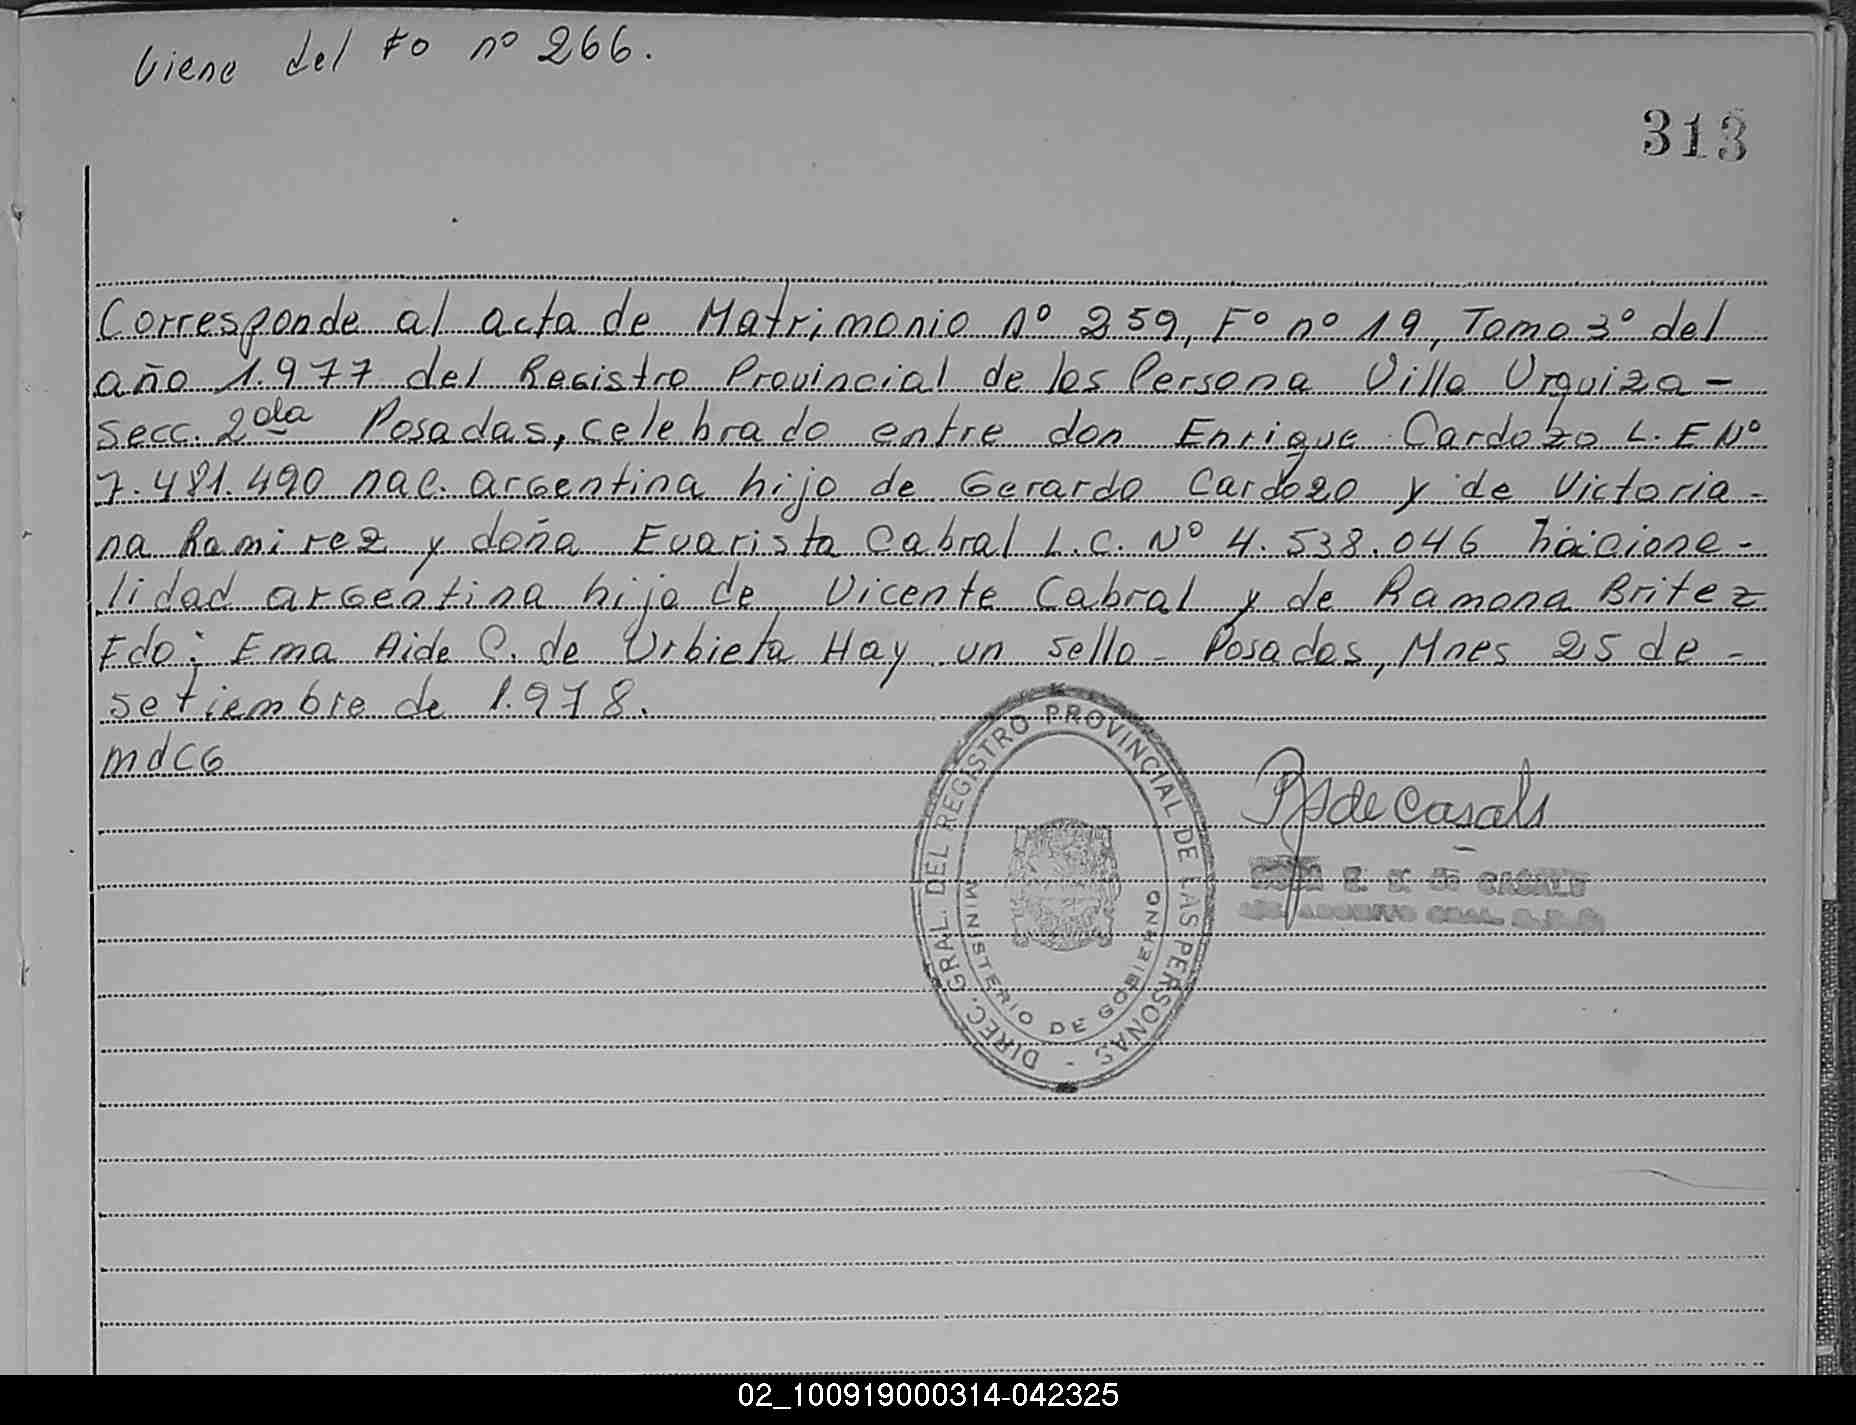 Viene del Fo nº 266.
313
Corresponde al acta de Matrimonio Nº 259, Fº nº 19, Tomo 3º del
año 1.977 del Registro Provincial de las Persona Villa Urquiza -
secc. 2da Posadas, celebrado entre don Enrique Cardozo L. E Nº
7.481.490 nac. argentina hijo de Gerardo Cardozo y de Victoria -
na Ramirez y doña Evarista Cabral L.C. Nº 4.538.046 naciona -
lidad argentina hija de Vicente Cabral y de Ramona Britez
Fdo: Ema Aide C. de Urbieta Hay un sello - Posadas, Mnes 25 de -
setiembre de 1.978.
mdCG
DIREC. GRAL. DEL REGISTRO PROVINCIAL DE LAS PERSONAS -
MINISTERIO DE GOBIERNO
de Casals
DE CASALS
ARCHIVO GRAL.
02_100919000314-042325